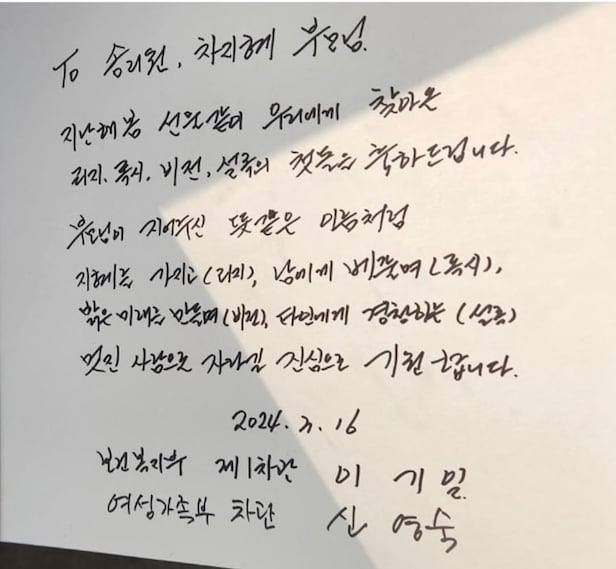 To 송리원, 차지혜 부모님.
지난해 봄 선물같이 우리에게 찾아온
리지, 록시, 비전, 설록의 첫돌을 축하드립니다.
부모님이 지어주신 뜻깊은 이름처럼
지혜를 가지고(리지), 남에게 베풀며(록시),
밝은 미래를 만들며(비전), 타인에게 경청하는(설록)
멋진 사람으로 자라길 진심으로 기원합니다.
2024. 3. 16
보건복지부 제1차관 이기일
여성가족부 차관 신영숙